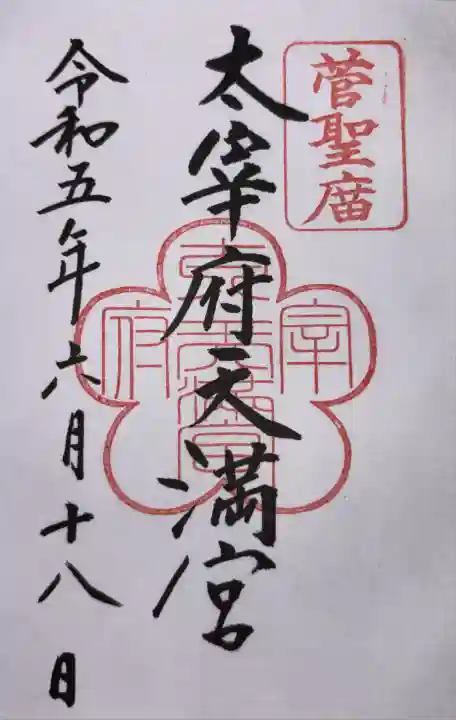 菅聖庿
太宰府天満宮
令和五年六月十八日